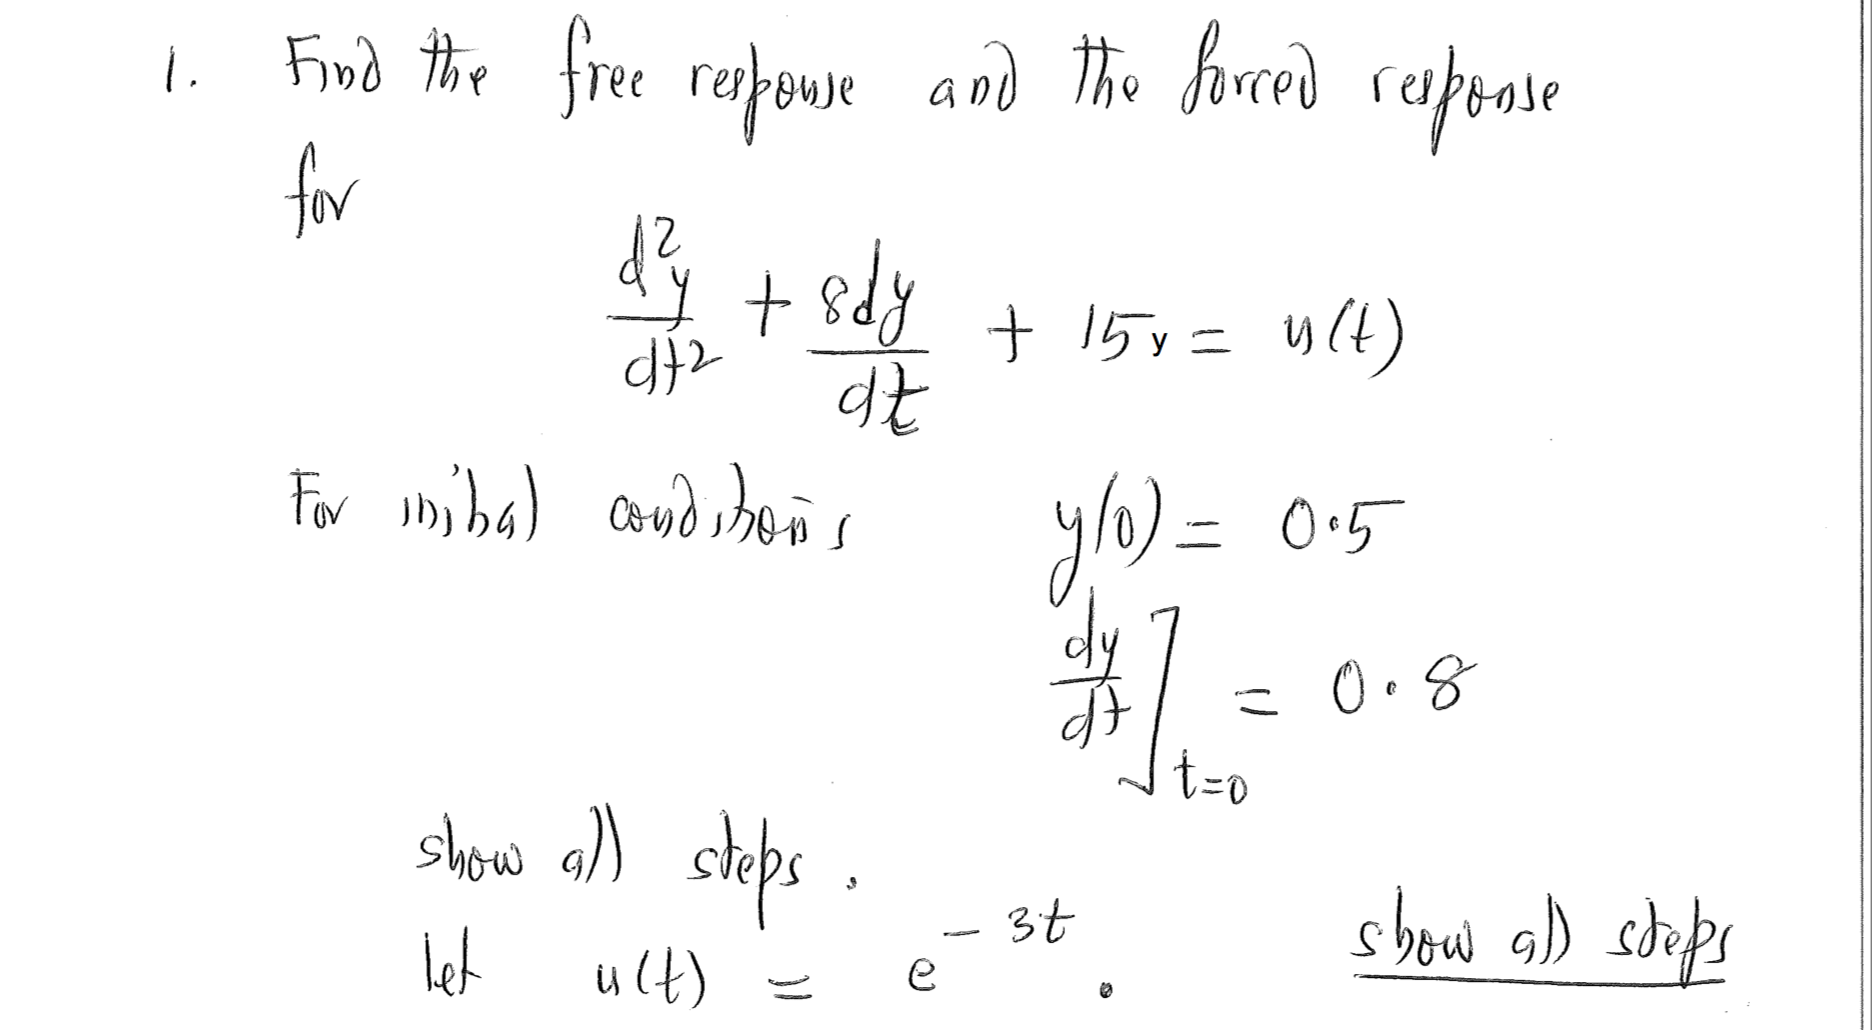 1. Find the free response and the forced response
for
d²y/dt² + 8dy/dt + 15y = u(t)
For initial conditions y(0) = 0.5
dy/dt]t=0 = 0.8
show all steps.
let u(t) = e^-3t. show all steps